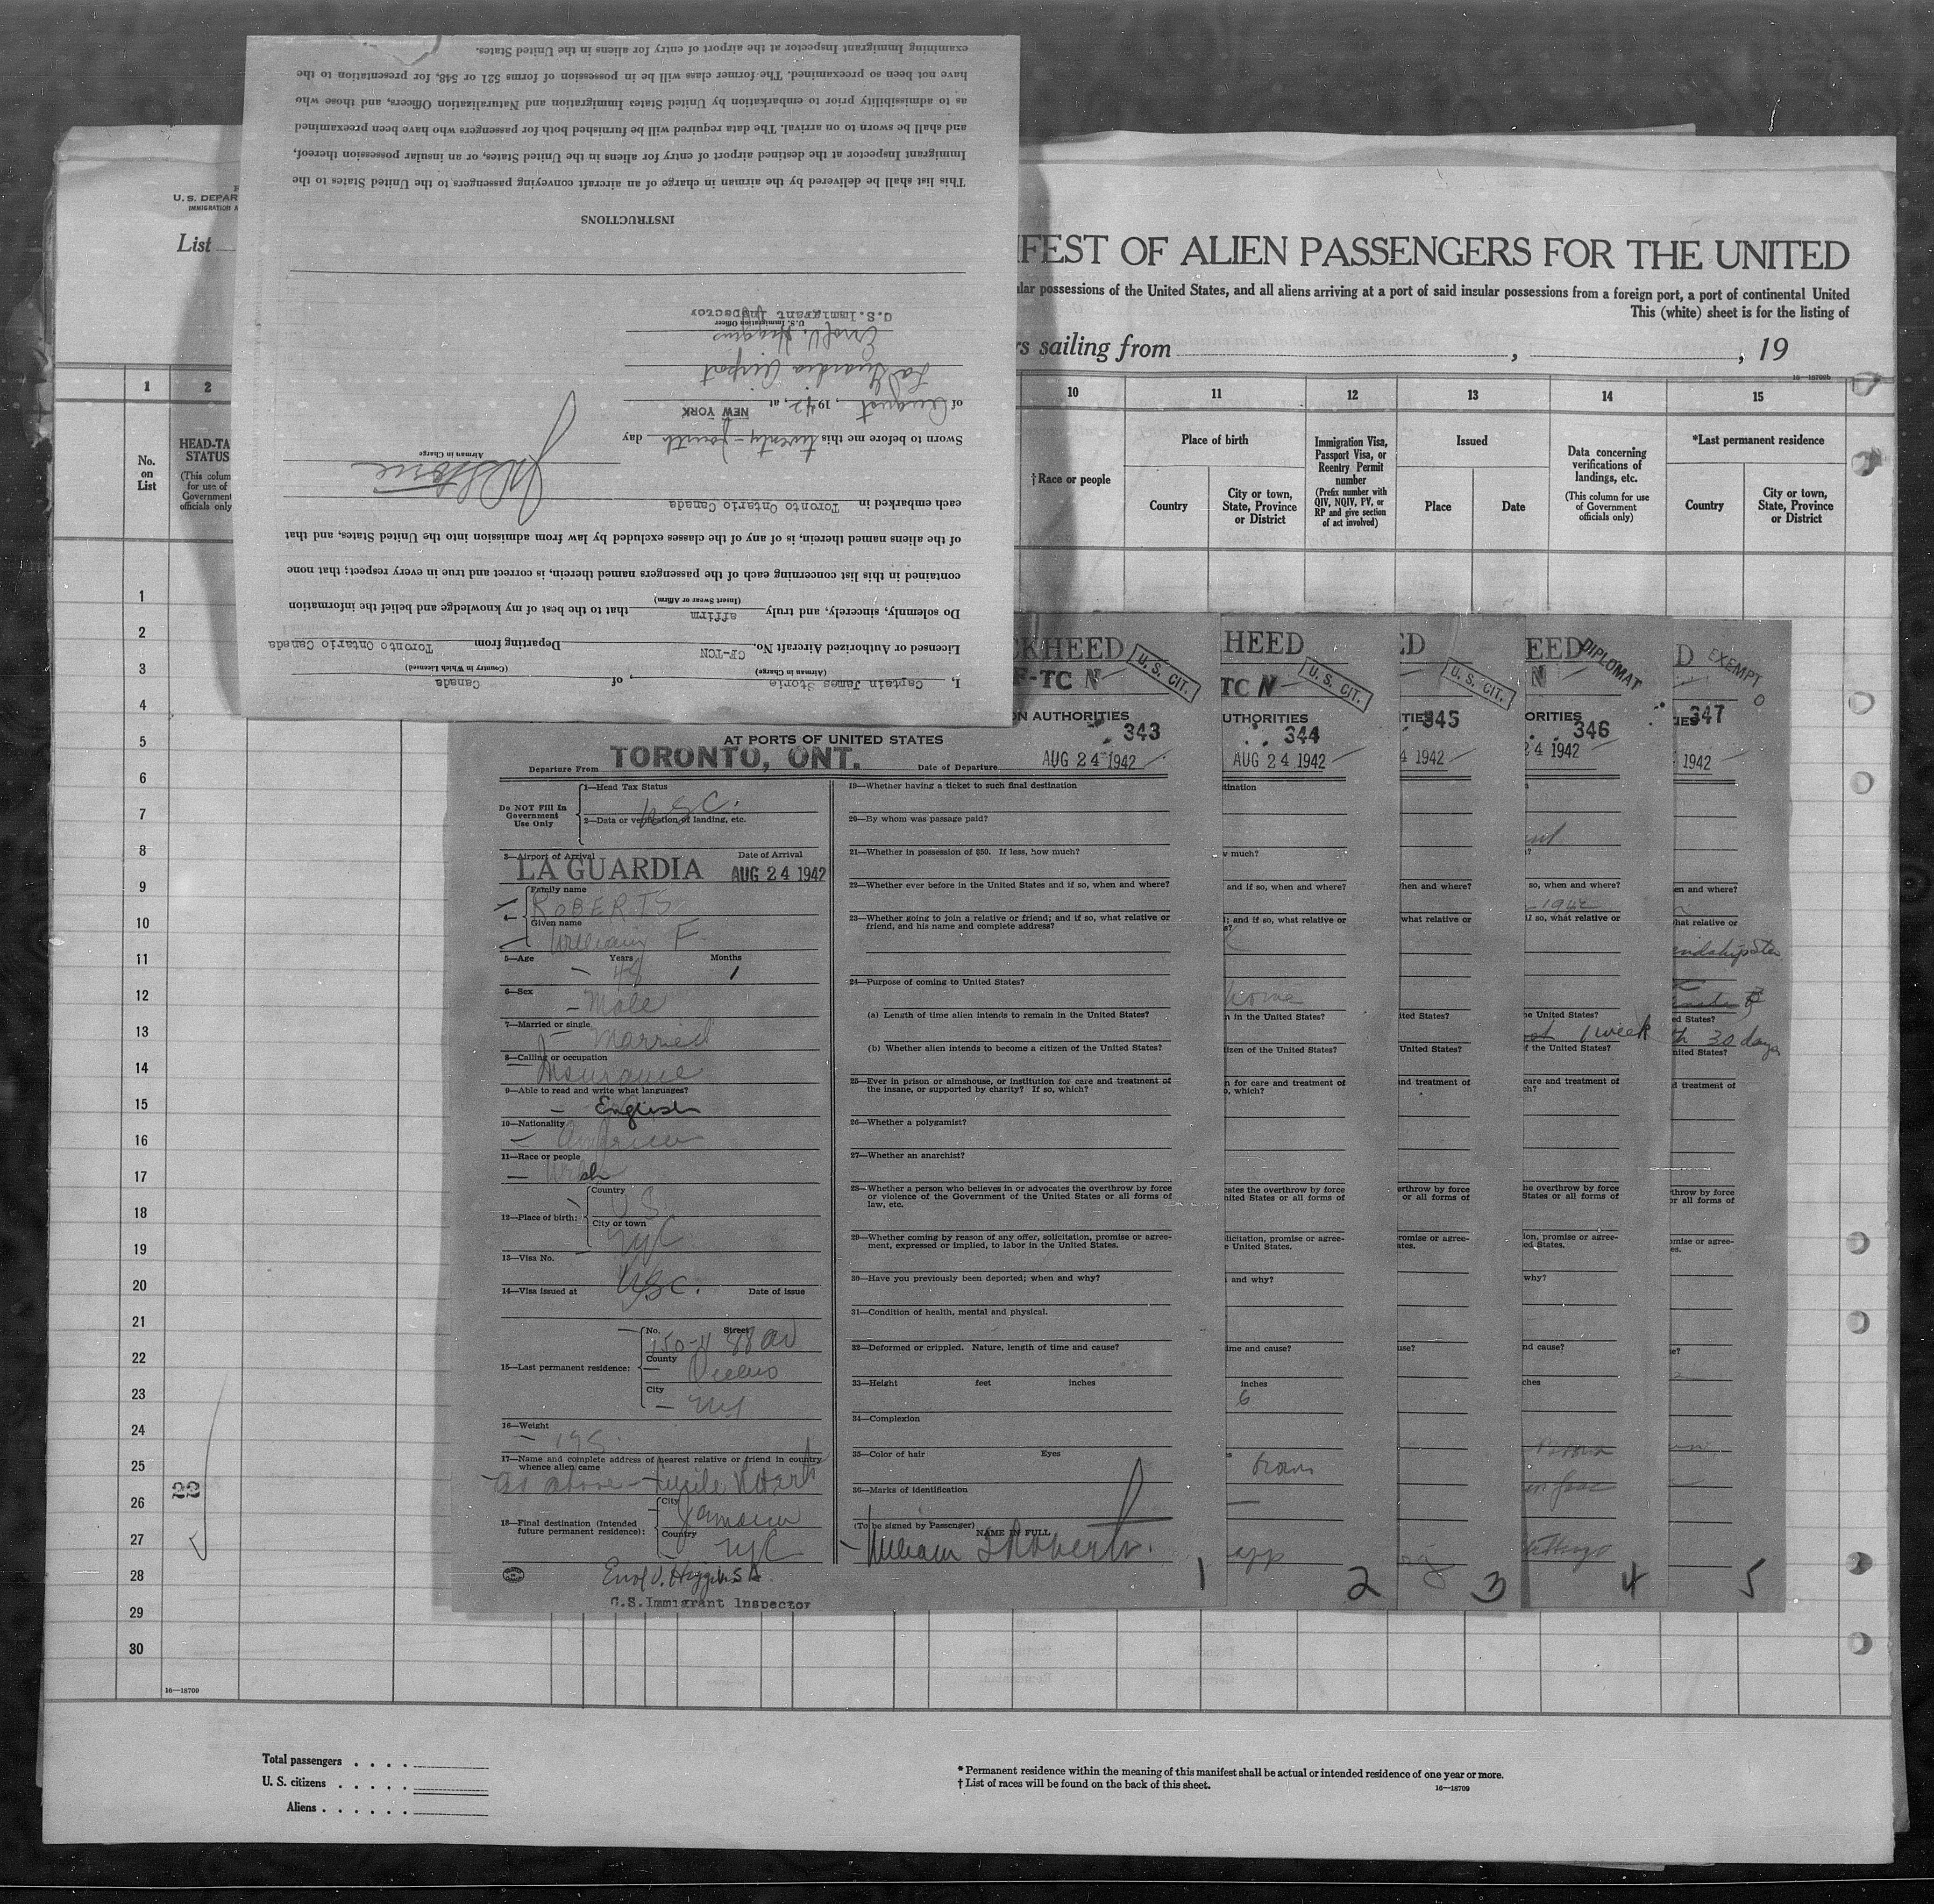 examining Immigrant Inspector at the airport of entry for aliens in the United States.
have not been so preexamined. The former class will be in possession of forms 521 or 548, for presentation to the
as to admissibility prior to embarkation by United States Immigration and Naturalization Officers, and those who
and shall be sworn to on arrival. The data required will be furnished both for passengers who have been preexamined
Immigrant Inspector at the destined airport of entry for aliens in the United States, or an insular possession thereof,
This list shall be delivered by the airman in charge of an aircraft conveying passengers to the United States to the
INSTRUCTIONS
U.S. Immigrant Inspector
U.S. Immigration Officer
Errol V. Higgins
La Guardia Airport
of August, 1942, at NEW YORK
Sworn to before me this twenty-fourth day
Airman in Charge
JStorie
each embarked in Toronto Ontario Canada
of the aliens named therein, is of any of the classes excluded by law from admission into the United States, and that
contained in this list concerning each of the passengers named therein, is correct and true in every respect; that none
(Insert Swear or Affirm)
Do solemnly, sincerely, and truly affirm that to the best of my knowledge and belief the information
Licensed or Authorized Aircraft No. CF-TCN Departing from Toronto Ontario Canada
(Airman in Charge) (Country in Which Licensed)
I, Captain James Storie, of Canada
U. S. DEPAR
IMMIGRATION A
List
IFEST OF ALIEN PASSENGERS FOR THE UNITED
lar possessions of the United States, and all aliens arriving at a port of said insular possessions from a foreign port, a port of continental United
This (white) sheet is for the listing of
rs sailing from , , 19
16—18709b
1 2 10 11 12 13 14 15
No. on List
HEAD-TA STATUS
(This colum for use of Government officials only
†Race or people
Place of birth
Country
City or town, State, Province or District
Immigration Visa, Passport Visa, or Reentry Permit number
(Prefix number with QIV, NQIV, FV, or RP and give section of act involved)
Issued
Place
Date
Data concerning verifications of landings, etc.
(This column for use of Government officials only)
*Last permanent residence
Country
City or town, State, Province or District
1
2
3
4
5
6
7
8
9
10
11
12
13
14
15
16
17
18
19
20
21
22
23
24
25
26
27
28
29
30
22
16—18709
CKHEED U. S. CIT.
F-TC N
ON AUTHORITIES
AT PORTS OF UNITED STATES
343
Departure From TORONTO, ONT. Date of Departure AUG 24 1942
Do NOT Fill In
Government
Use Only
1—Head Tax Status
U S C.
2—Data or verification of landing, etc.
3—Airport of Arrival Date of Arrival
LA GUARDIA AUG 24 1942
4— Family name
ROBERTS
Given name
William F.
5—Age Years Months
1
6—Sex
Male
7—Married or single
Married
8—Calling or occupation
Insurance
9—Able to read and write what languages?
English
10—Nationality
American
11—Race or people
Welsh
12—Place of birth: Country
U S.
City or town
NYC
13—Visa No.
USC.
14—Visa issued at Date of issue
15—Last permanent residence: No. Street
150-11 88 Av
County
Queens
City
NY
16—Weight
195
17—Name and complete address of nearest relative or friend in country
whence alien came
as above
18—Final destination (Intended
future permanent residence): City
Jamaica
Country
NYC
Errol V. Higgins
U.S. Immigrant Inspector
19—Whether having a ticket to such final destination
20—By whom was passage paid?
21—Whether in possession of $50. If less, how much?
22—Whether ever before in the United States and if so, when and where?
23—Whether going to join a relative or friend; and if so, what relative or
friend, and his name and complete address?
24—Purpose of coming to United States?
(a) Length of time alien intends to remain in the United States?
(b) Whether alien intends to become a citizen of the United States?
25—Ever in prison or almshouse, or institution for care and treatment of
the insane, or supported by charity? If so, which?
26—Whether a polygamist?
27—Whether an anarchist?
28—Whether a person who believes in or advocates the overthrow by force
or violence of the Government of the United States or all forms of
law, etc.
29—Whether coming by reason of any offer, solicitation, promise or agree-
ment, expressed or implied, to labor in the United States.
30—Have you previously been deported; when and why?
31—Condition of health, mental and physical.
32—Deformed or crippled. Nature, length of time and cause?
33—Height feet inches
34—Complexion
35—Color of hair Eyes
36—Marks of identification
(To be signed by Passenger)
NAME IN FULL
William F Roberts.
1
HEED U. S. CIT.
TC N
UTHORITIES
344
AUG 24 1942
tination
w much?
and if so, when and where?
; and if so, what relative or
s?
home
n in the United States?
tizen of the United States?
n for care and treatment of
o, which?
cates the overthrow by force
nited States or all forms of
licitation, promise or agree-
e United States.
and why?
ime and cause?
inches
6
2
ED U. S. CIT.
TIES
345
4 1942
hen and where?
what relative or
ited States?
United States?
nd treatment of
erthrow by force
or all forms of
romise or agree-
ates.
use?
3
EED DIPLOMAT
N
ORITIES
346
24 1942
so, when and where?
1942
if so, what relative or
he United States?
1 week
f the United States?
care and treatment of
ch?
he overthrow by force
States or all forms of
ion, promise or agree-
ed States.
why?
nd cause?
ches
4
D EXEMPT
IES
347
1942
en and where?
hat relative or
ed States?
30 days
nited States?
d treatment of
throw by force
or all forms of
omise or agree-
es.
e?
5
Total passengers . . . .
U. S. citizens . . . . .
Aliens . . . . . .
* Permanent residence within the meaning of this manifest shall be actual or intended residence of one year or more.
† List of races will be found on the back of this sheet.
16—18709